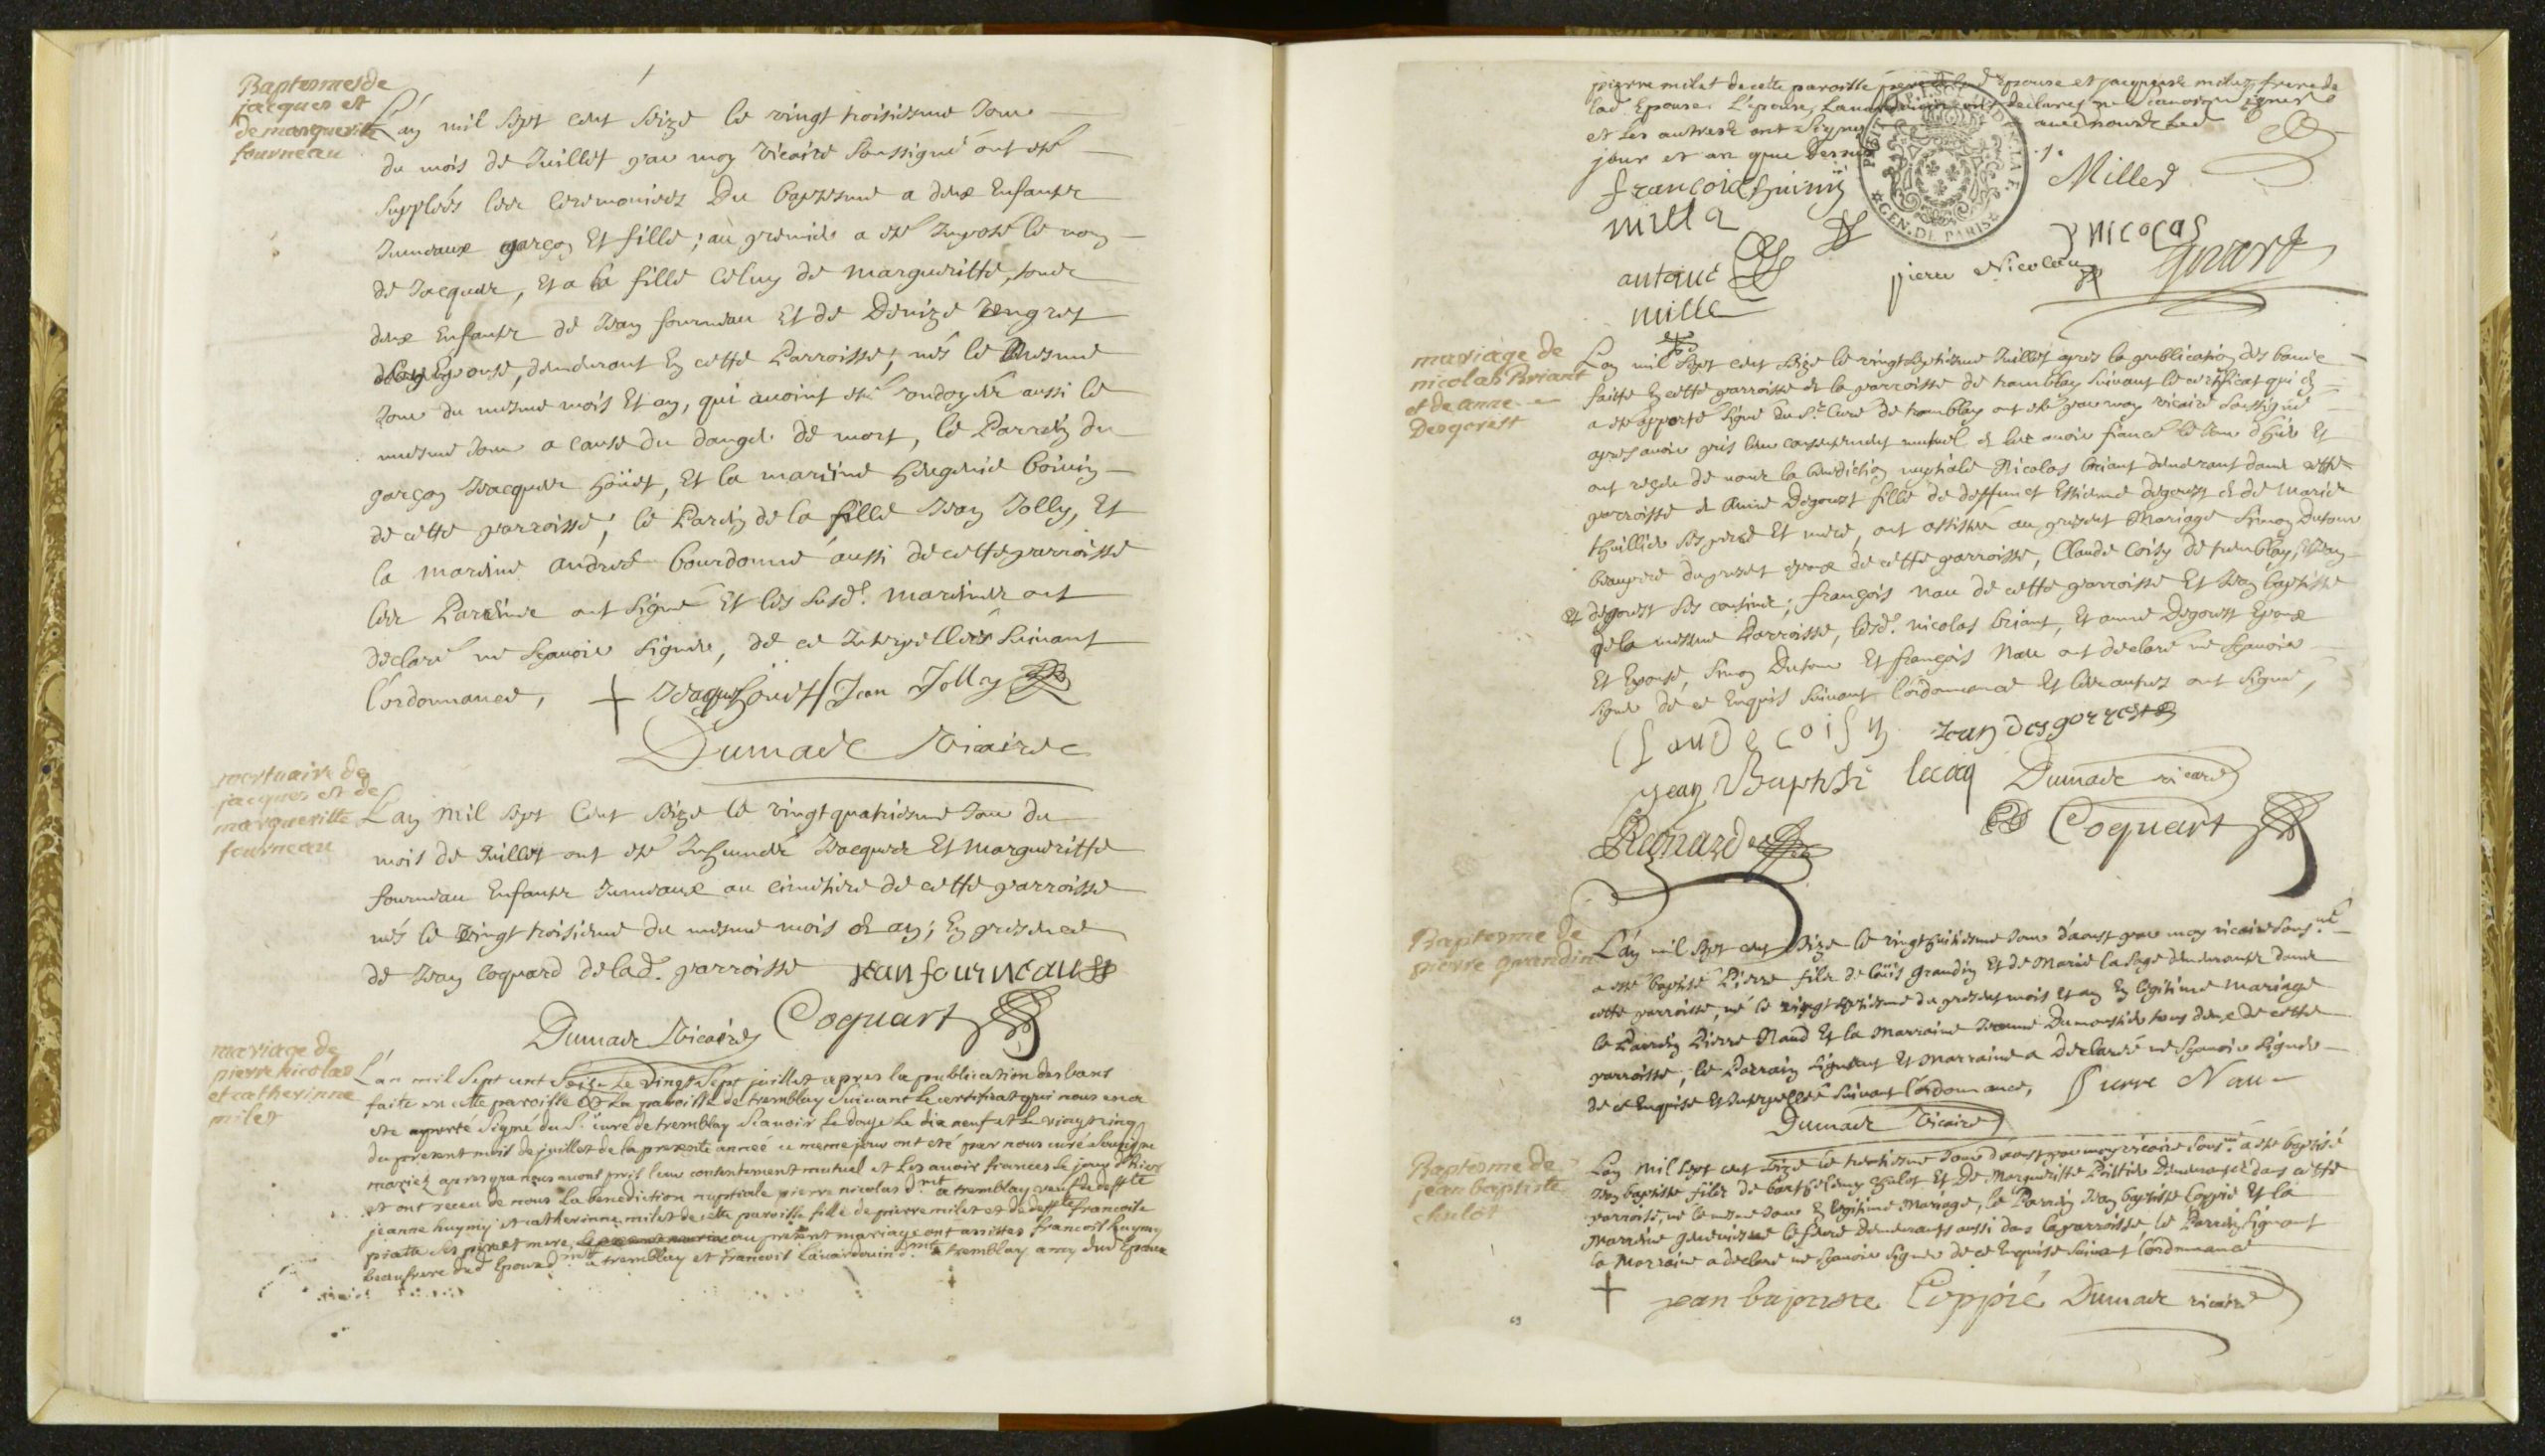 Baptesmes de
jacques et
de marguerite
fourneau
L'an mil sept cent seize le vingt troisiesme Jour
du mois de Juillet par moy vicaire soussigné ont esté
supplées les ceremonies du baptesme a deux Enfants
Jumeaux garçon Et fille; au premier a esté Imposé le nom
de Jacques, Et a la fille celuy de Margueritte, tous
deux Enfants de Jean fourneau Et de Denize
Epouse, demeurant En cette Parroisse, nés le mesme
Jour du mesme mois Et an, qui avoint esté ondoyés aussi le
mesme Jour a cause du danger de mort, le Parrein du
garçon Jacques hoüet, Et la mareine boivin
de cette parroisse; le Parein de la fille Jean Jolly, Et
la mareine andrée bourdonné aussi de cette parroisse
les Pareins ont signé Et les susd. mareines ont
declaré ne sçavoir signer, de ce Interpellées suivant
l'ordonnance, Jacques houet Jean Jolly
Dumade Vicaire
mortuaire de
jacques et de
margueritte
fourneau
L'an mil sept Cent seize le vingt quatriesme Jour du
mois de Juillet ont esté Inhumés Jacques Et Margueritte
fourneau Enfants Jumeaux au cimetiere de cette parroisse
nés le vingt troisieme du mesme mois et an; En presence
de Jean Coquard de lad. parroisse jean fourneau
Dumade Vicaire Coquart
mariage de
pierre nicolas
et catherinne
milet
L'an mil Sept cent Seize Le Vingt Sept juillet apres la publication des bans
faite en cette paroisse et La paroisse de tremblay Suivant Le certificat qui nous en a
ete aporté Signé du Sr. curé de tremblay Scavoir Le douze Le dix neuf et Le vingt cinq
du present mois de juillet de la presente année ce meme jour ont eté par nous curé Soussigné
mariez apres que nous avons pris leur consentement mutuel et Les avoir fiancés Le jour d'hier
et ont receu de nous La benediction nuptiale pierre nicolas dmt a tremblay veuf de deffte
jeanne huymy et catherinne milet de cette paroisse fille de pierre milet et de deffte francoise
piatte Ses pere et mere, au present mariage ont assistes francois huymy
beaufrere dud Epoux dmt a tremblay et francois Lavardouin dmt a tremblay amy dud Epoux
pierre milet de cette paroisse Epouse et jacques milet frere de
lad Epouse. L'epouse, declarez ne scavoir signer
et Les autres ont Signez avec nous Led
jour et an que dessus
GEN. DE PARIS
francois huimy
Millet
milla
nicolas
antoine
mille
pierre Nicolas
mariage de
nicolas Briant
et de anne
Degorest
L'an mil sept cent seize le vingt septiesme Juillet apres la publication des bancs
faitte En cette parroisse et la parroisse de tremblay suivant le certificat qui En
a esté apporté signé du Sr. Curé de tremblay ont esté par moy vicaire soussigné
apres avoir pris leur consentement mutuel et les avoir fiancé le Jour d'hier Et
ont reçeu de nous la benediction nuptiale Nicolas briant demeurant dans cette
parroisse et Anne Degoust fille de deffunct Estienne degoust et de Marie
thuillier ses pere Et mere, ont assistés au present Mariage Simon Dutour
beaupere du present epoux de cette parroisse, Claude Coisy de tremblay, Jean
degoust ses cousins; françois nau de cette parroisse Et Jean baptiste
de la mesme Parroisse, lesd. nicolas briant, Et anne Degoust Epoux
Et Epouse, Simon Dutour Et françois Nau ont declaré ne sçavoir
signer de ce Enquis suivant l'ordonnance Et les autres ont signé,
Claude coisy Jean desgorrest
jean Baptiste lecoq Dumade vicaire
Renard Coquart
Baptesme de
pierre grandin
L'an mil sept cent seize le vingt huitiesme Jour d'aoust par moy vicaire sous.né
a esté baptisé Pierre fils de loüis Grandin Et de Marie la sage demeurants dans
cette parroisse, né le vingt septiesme du present mois Et an En legitime mariage
le Parrein Pierre Naud Et la Marraine Jeanne Dumoustier tous deux de cette
parroisse, le Parrain signant Et Marraine a Declaré ne sçavoir signer
de ce Enquise Et Interpellée suivant l'ordonnance, Pierre Nau
Dumade Vicaire
Baptesme de
jean baptiste
chulot
L'an mil sept cent seize le trentiesme Jour d'aoust par moy vicaire sous.né a esté baptisé
Jean baptiste fils de barthelemy Et De Margueritte Demeurants dans cette
parroisse, né le mesme Jour En legitime Mariage, le Parrein Jean baptiste Coppié Et la
Marreine le febvre Demeurants aussi dans la parroisse, le Parrein signant
la Marraine a declaré ne sçavoir signer de ce Enquise suivant l'ordonnance
jean baptiste Coppié Dumade vicaire